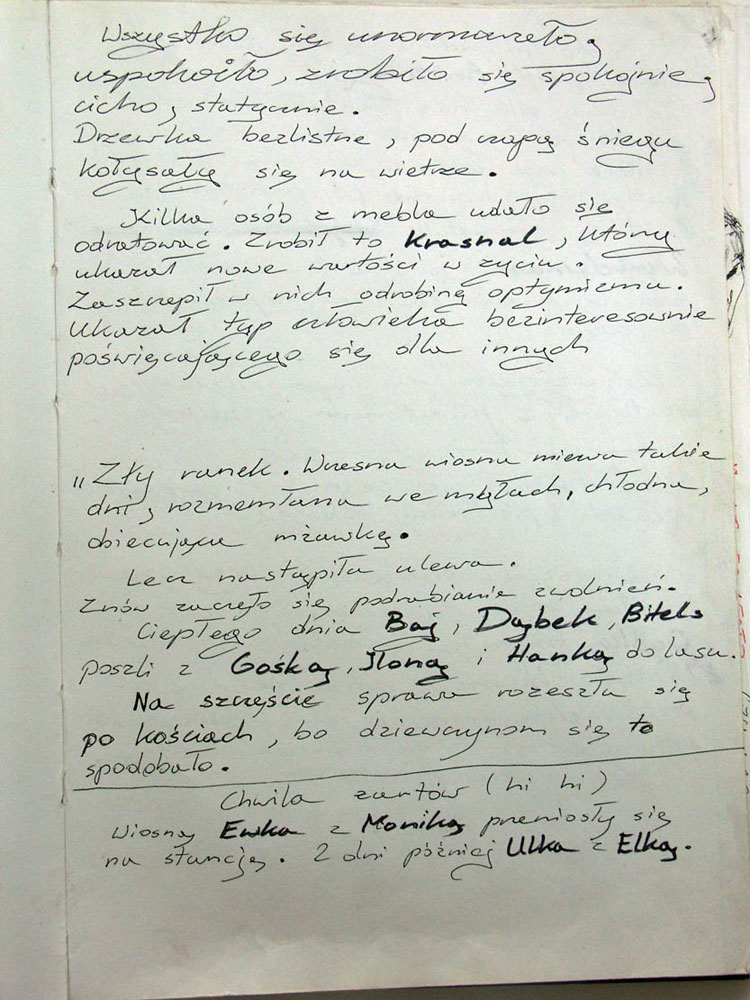 Wszystko się unormowało,
uspokoiło, zrobiło się spokojnie,
cicho, statycznie.
Drzewka bezlistne, pod czapą śniegu
kołysały się na wietrze.
Kilka osób z mebla udało się
odratować. Zrobił to Krasnal, który
ukazał nowe wartości w życiu.
Zaszczepił w nich odrobinę optymizmu.
Ukazał typ człowieka bezinteresownie
poświęcającego się dla innych
„Zły ranek. Wczesna wiosna miewa takie
dni, rozmemłana we mgłach, chłodna,
obiecująca mżawkę.
Lecz nastąpiła ulewa.
Znów zaczęło się podrabianie zwolnień.
Ciepłego dnia Baj, Dąbek, Bitels
poszli z Gośką, Iloną i Hanką do lasu.
Na szczęście sprawa rozeszła się
po kościach, bo dziewczynom się to
spodobało.
Chwila żartów (hi hi)
Wiosną Ewka z Moniką przeniosły się
na stancję. 2 dni później Ulka z Elką.